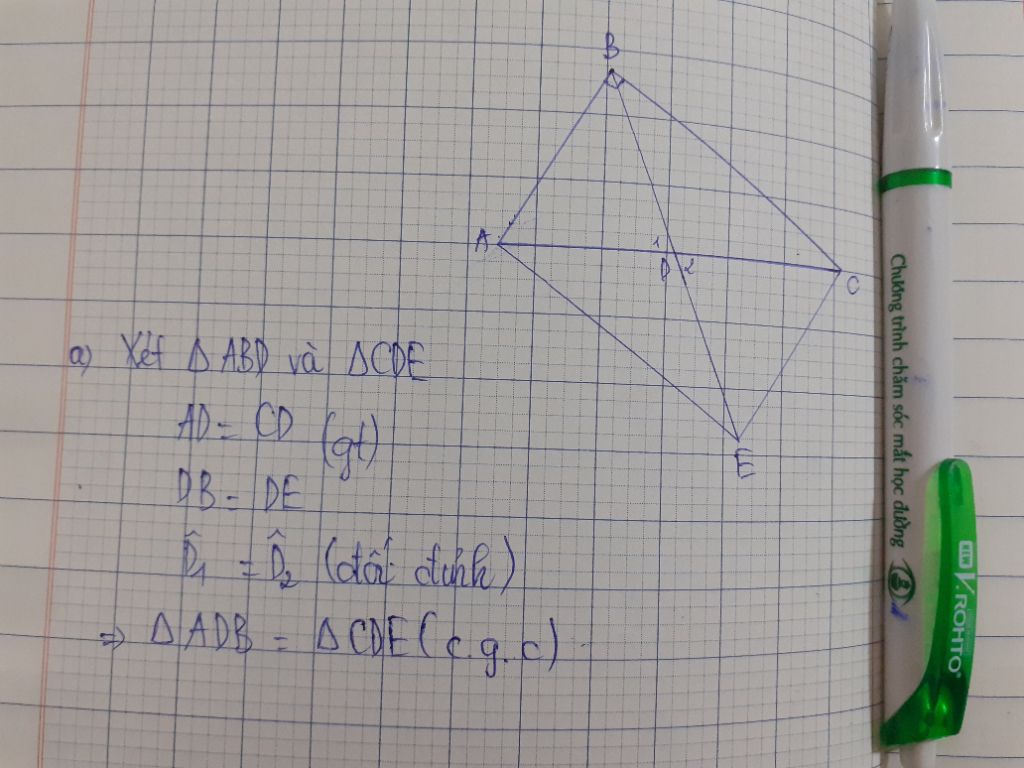 B
A
1
D 2
C
E
a) Xét Δ ABD và ΔCDE
AD = CD (gt)
DB = DE
D̂1 = D̂2 (đối đỉnh)
=> Δ ADB = ΔCDE (c.g.c)
Chương trình chăm sóc mắt học đường
V.ROHTO